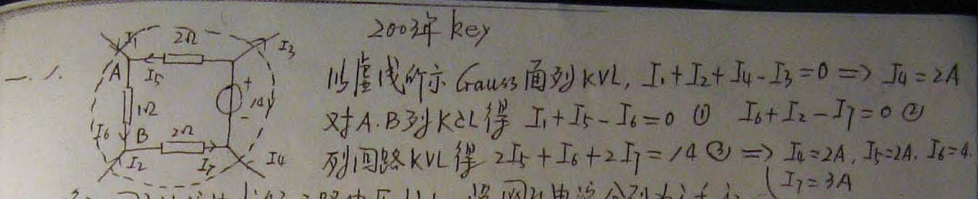 2003年 key
一. 1.
I1 2Ω I3
A I5
1Ω + 14V -
I6 B 2Ω
I2 I7 I4
以虚线所示 Gauss 面列 KVL, I1+I2+I4-I3=0 => I4=2A
对 A.B列 KCL得 I1+I5-I6=0 ① I6+I2-I7=0 ②
列回路 KVL 得 2I5+I6+2I7=14 ③ => I4=2A, I5=2A. I6=4.
I7=3A